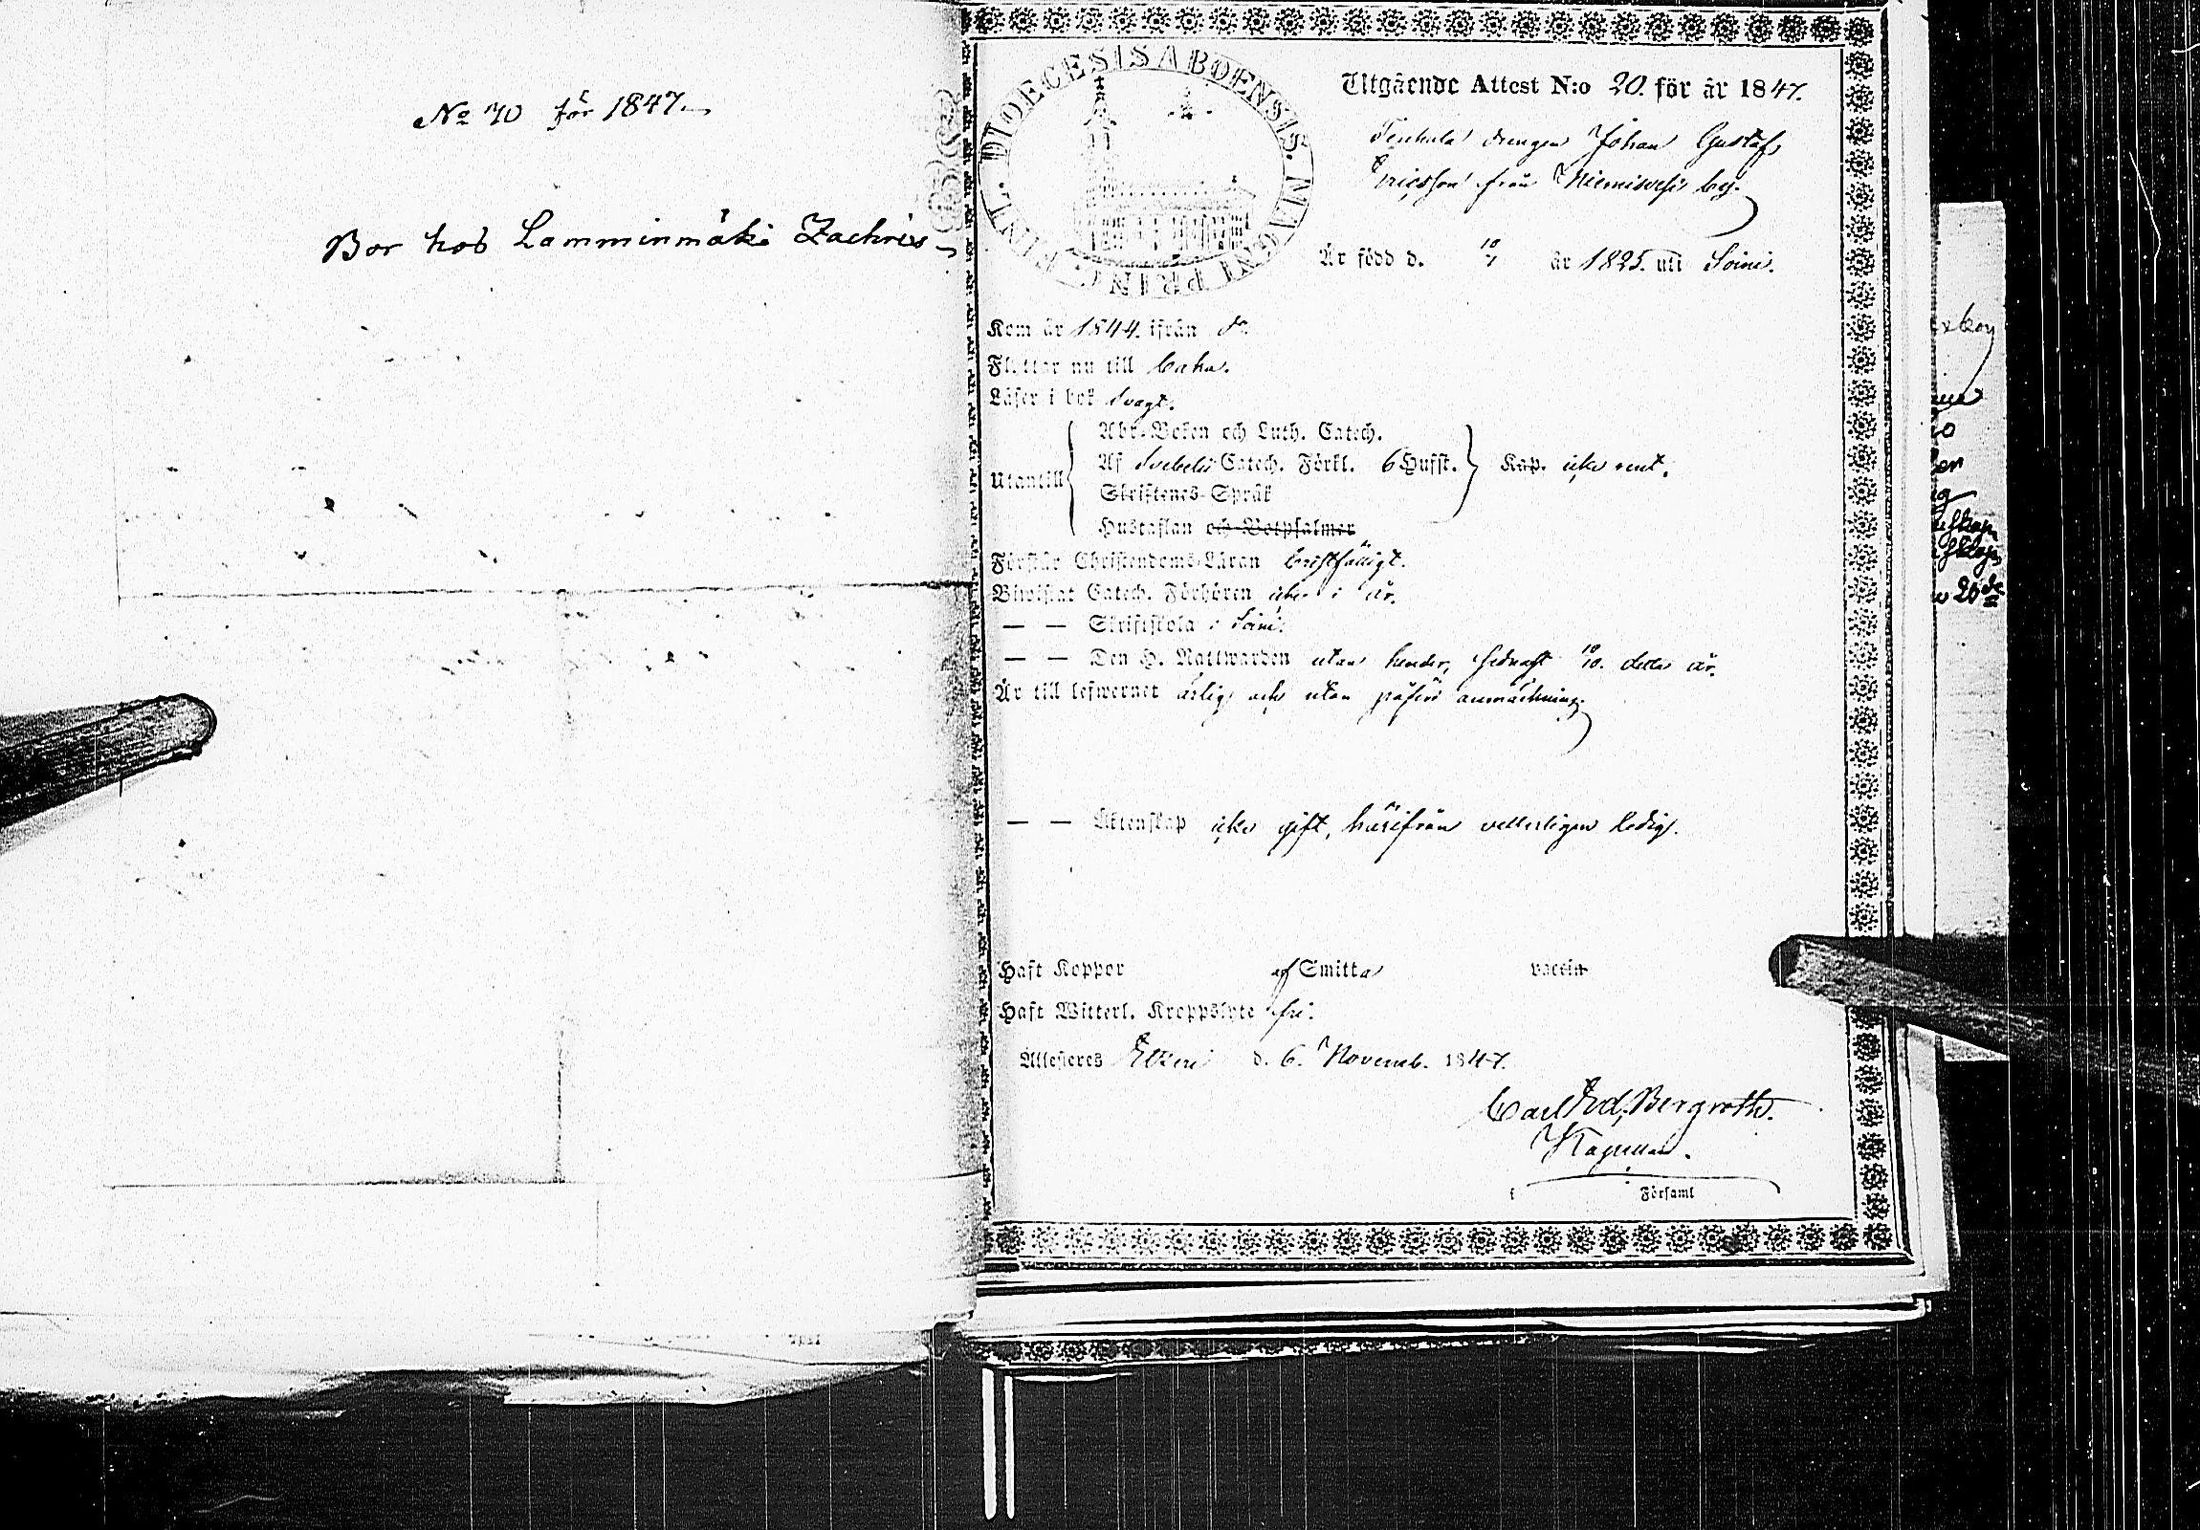 No 70 för 1847.
Bor hos Lamminmäki Zachris
DIOECESIS ABOENSIS. MAGNI PRINC. FINL.
Utgående Attest N:o 20. för år 1847.
drengen Johan Gustaf
Ericsson från Niemisvesi by.
Är född d. 10/1 år 1825. uti Soini.
Kom år 1844. ifrån do.
Flyttar nu till
Läser i bok svagt.
Utantill
Abc-Boken och Luth. Catech.
Af Svebelii Catech. Förkl. 6 Hufst. Kap. icke rent.
Skriftenes Språk
Hustaflan och Botpsalmer
Förstår Christendoms-Läran bristfälligt.
Biwistat Catech. Förhören icke i år.
— — Skriftskola i Soini.
— — Den H. Nattwarden utan hinder, sednast 10/10. detta år.
Är till lefwernet ärlig och utan påförd anmärkning.
— — Äktenskap icke gift, härifrån vetterligen ledig.
Haft Koppor af Smitta vaccin
Haft Witterl. Kroppslyte fri.
Attesteres Etseri d. 6. Novemb. 1847.
Carl Ed. Bergroth.
Kapellan.
f Församl